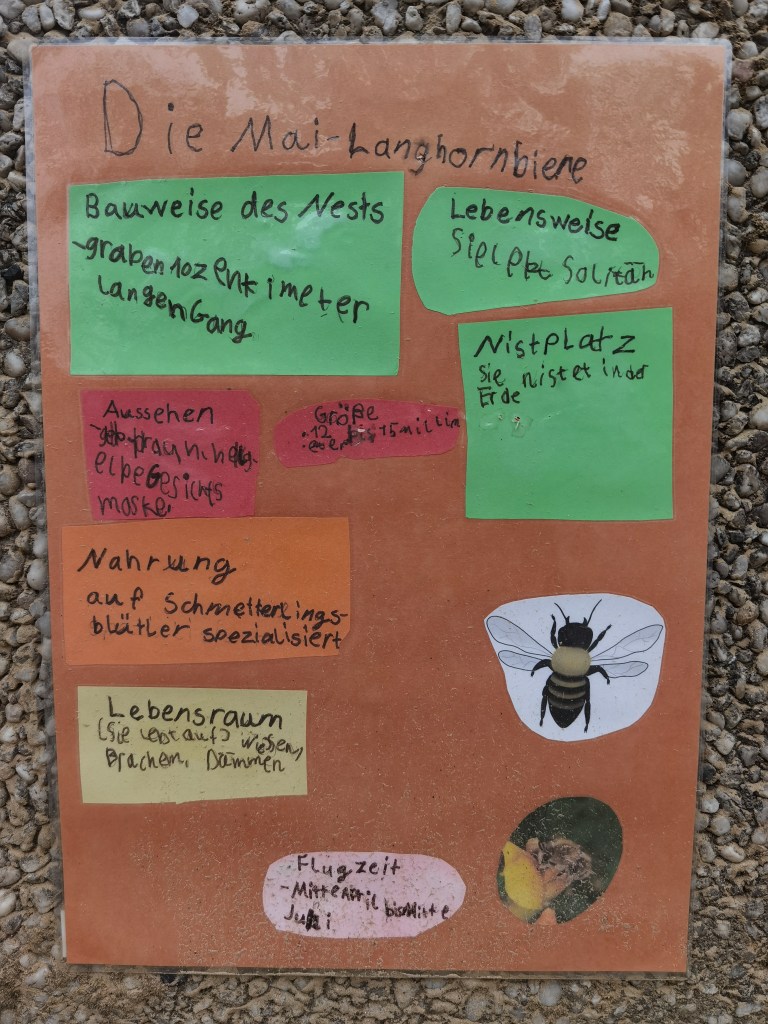 Die Mai-Langhornbiene
Bauweise des Nests
-graben 10 zentimeter
langen Gang
Lebensweise
Sie lebt Solitär
Nistplatz
Sie nistet in der
Erde
Aussehen
elbe Gesichts
maske
Größe
12 bis 15 millim
Nahrung
auf Schmetterlings-
blütler spezialisiert
Lebensraum
(Sie lebt auf) wiesen,
Brachem, Dämmen
Flugzeit
-Mitte bis Mitte